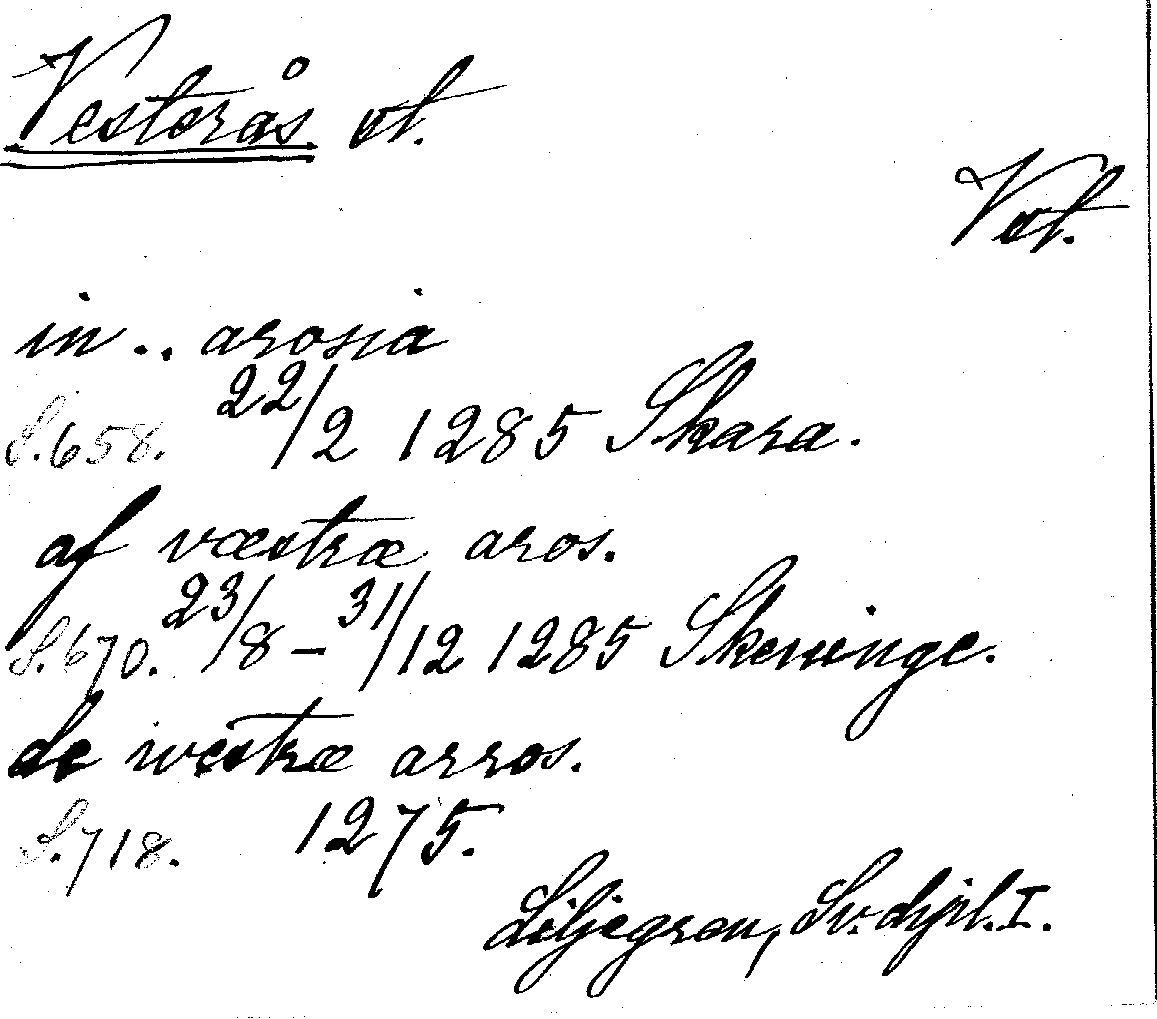 Vesterås st.
Vst.
in .. arosia
S. 658. 22/2 1285 Skara.
af væstræ aros.
S. 670. 23/8 – 31/12 1285 Skeninge.
de wæstræ arros.
S. 718. 1275.
Liljegren, Sv. dipl. I.